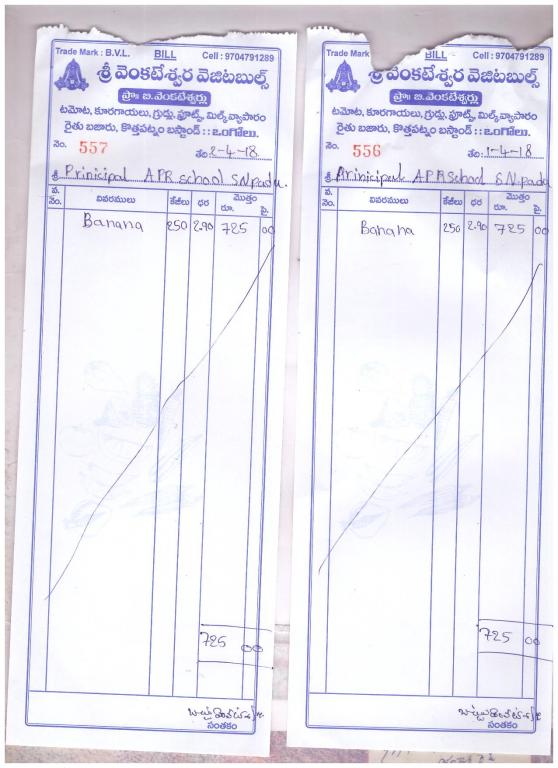 Trade Mark : B.V.L. BILL Cell : 9704791289
శ్రీ వెంకటేశ్వర వెజిటబుల్స్
ప్రొః బి.వెంకటేశ్వర్లు
టమోట, కూరగాయలు, గ్రుడ్లు, ఫ్రూట్స్, మిల్క్ వ్యాపారం
రైతు బజారు, కొత్తపట్నం బస్టాండ్ : : ఒంగోలు.
నెం. 557 తేది 2-4-18
శ్రీ Prinicipal A.P.R. School S.N.padu.
వ. నెం. వివరములు కేజీలు ధర మొత్తం రూ. పై.
Banana 250 2.90 725 00
725 00
సంతకం
Trade Mark BILL Cell : 9704791289
శ్రీ వెంకటేశ్వర వెజిటబుల్స్
ప్రొః బి.వెంకటేశ్వర్లు
టమోట, కూరగాయలు, గ్రుడ్లు, ఫ్రూట్స్, మిల్క్ వ్యాపారం
రైతు బజారు, కొత్తపట్నం బస్టాండ్ : : ఒంగోలు.
నెం. 556 తేది 1-4-18
శ్రీ Prinicipal A.P.R School S.N.padu
వ. నెం. వివరములు కేజీలు ధర మొత్తం రూ. పై.
Banana 250 2.90 725 00
725 00
సంతకం